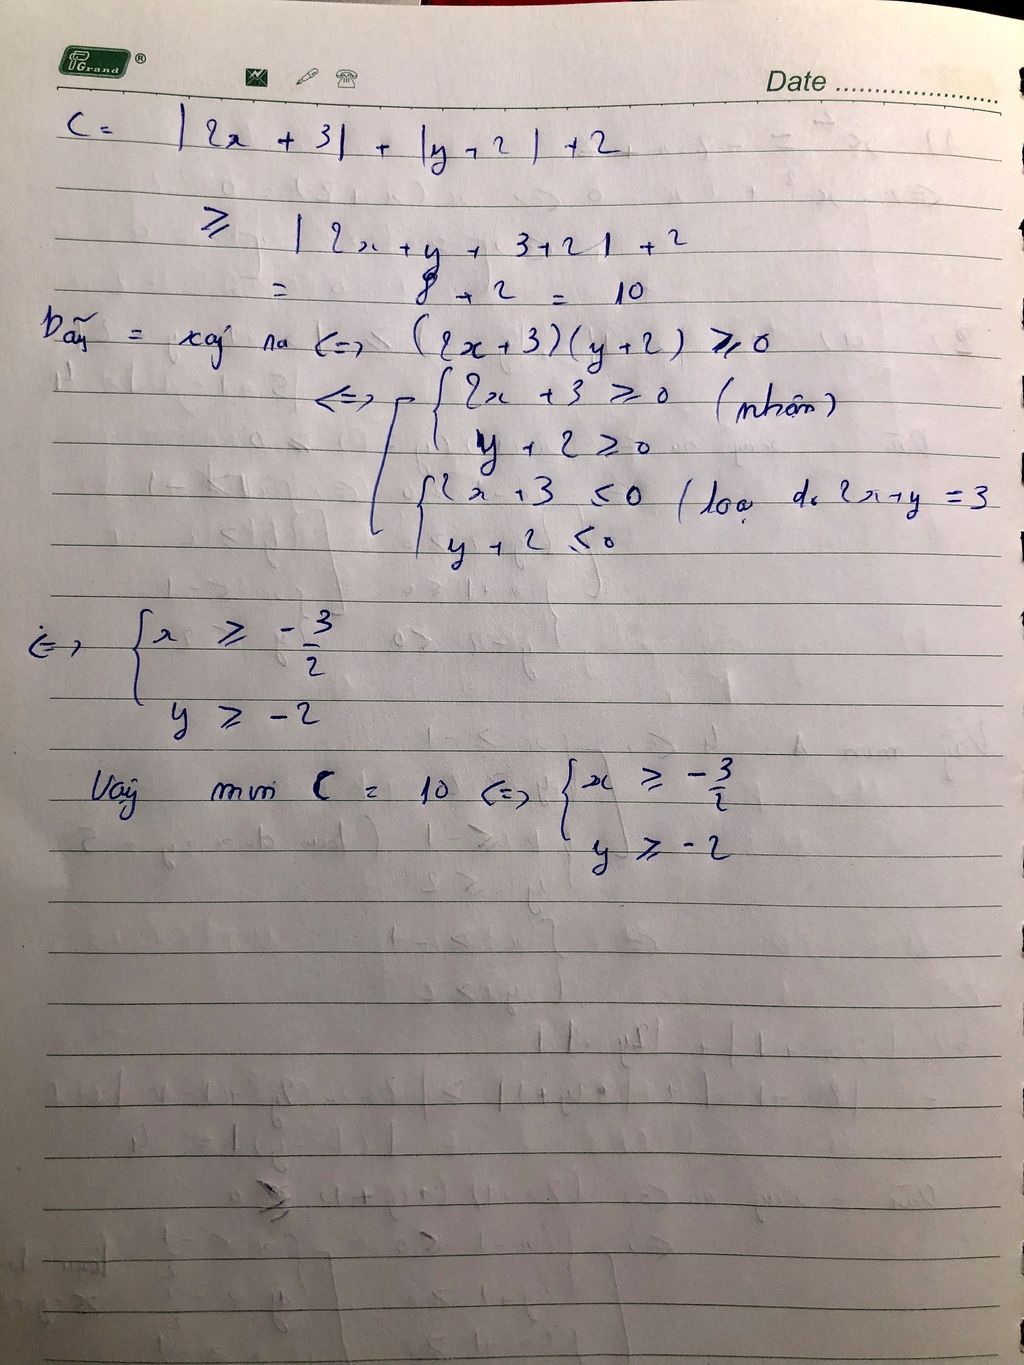 PGrand ®
Date ........................
C = |2x + 3| + |y + 2| + 2
≥ |2x + y + 3 + 2| + 2
= 8 + 2 = 10
Dấu = xảy ra <=> (2x + 3)(y + 2) ≥ 0
<=> [ { 2x + 3 ≥ 0 (nhận)
y + 2 ≥ 0
{ 2x + 3 ≤ 0 (loại do 2x + y = 3
y + 2 ≤ 0
<=> { x ≥ - 3/2
y ≥ - 2
Vậy min C = 10 <=> { x ≥ - 3/2
y ≥ - 2